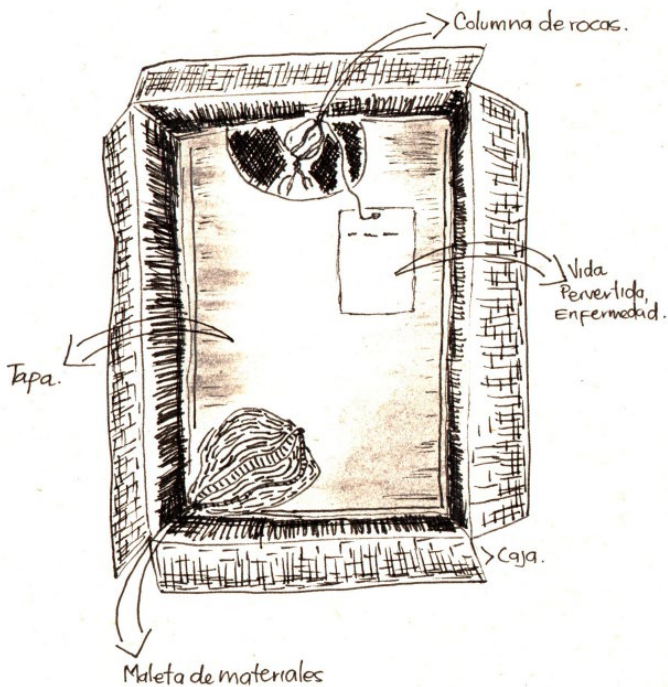 Columna de rocas.
Vida
Pervertida,
Enfermedad.
Tapa.
Caja.
Maleta de materiales